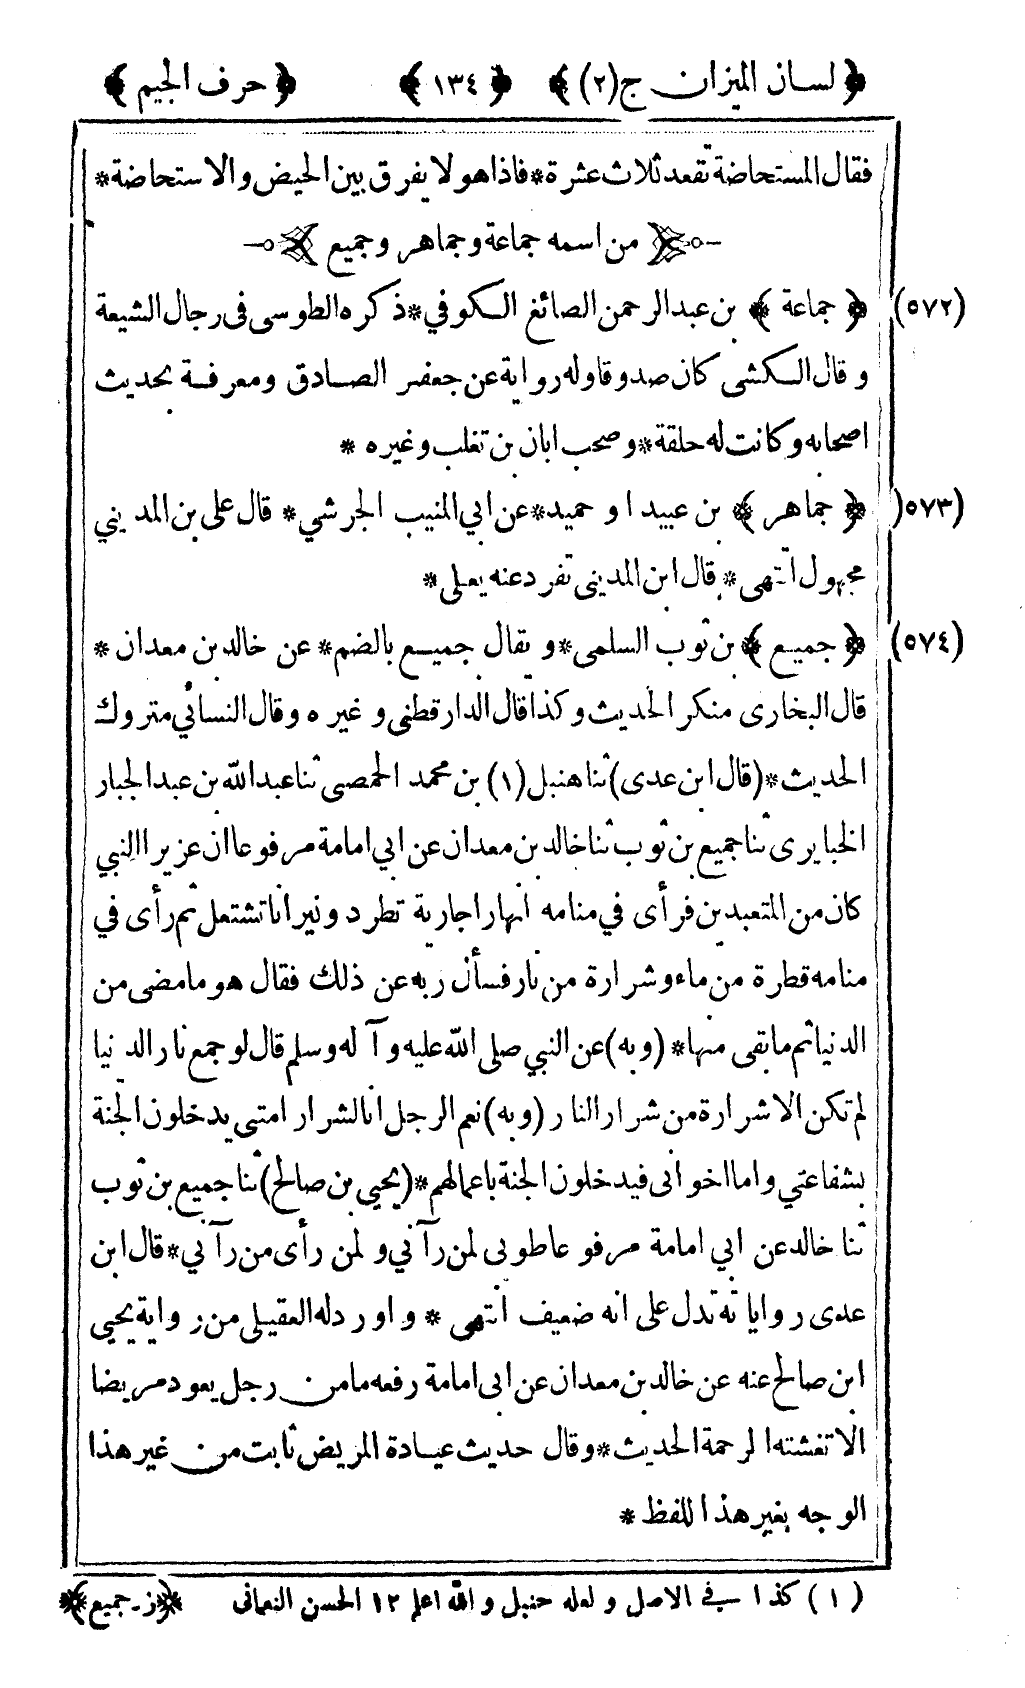 ﴿ لسان الميزان ج (٢) ﴾ ﴿ ١٣٤ ﴾ ﴿ حرف الجيم ﴾
فقال المستحاضة تقعد ثلاث عشرة * فاذا هو لا يفرق بين الحيض والاستحاضة *
من اسمه جماعة وجماهر وجميع
(٥٧٢) ﴿ جماعة ﴾ بن عبد الرحمن الصائغ الكوفي * ذكره الطوسى فى رجال الشيعة
وقال الكشى كان صدوقا وله رواية عن جعفر الصادق ومعرفة بحديث
اصحابه وكانت له حلقة * وصحب ابان بن تغلب وغيره *
(٥٧٣) ﴿ جماهر ﴾ بن عبيد او حميد * عن ابي المنيب الجرشي * قال على بن المديني
مجهول انتهى * قال ابن المدينى تفرد عنه يعلى *
(٥٧٤) ﴿ جميع ﴾ بن ثوب السلمى * ويقال جميع بالضم * عن خالد بن معدان *
قال البخارى منكر الحديث وكذا قال الدارقطنى وغيره وقال النسائي متروك
الحديث * (قال ابن عدى) ثنا هنبل (١) بن محمد الحمصى ثنا عبد الله بن عبد الجبار
الخبايرى ثنا جميع بن ثوب ثنا خالد بن معدان عن ابي امامة مرفوعا ان عزيرا النبي
كان من المتعبدين فرأى في منامه انهارا جارية تطرد ونيرانا تشتعل ثم رأى في
منامه قطرة من ماء وشرارة من نار فسأل ربه عن ذلك فقال هو ما مضى من
الدنيا ثم ما بقى منها * (وبه) عن النبي صلى الله عليه وآله وسلم قال لو جمع نار الدنيا
لم تكن الا شرارة من شرار النار (وبه) نعم الرجل انا لشرار امتى يدخلون الجنة
بشفاعتي واما اخوانى فيدخلون الجنة باعمالهم * (يحيى بن صالح) ثنا جميع بن ثوب
ثنا خالد عن ابي امامة مرفوعا طوبى لمن رآني ولمن رأى من رآني * قال ابن
عدى رواياته تدل على انه ضعيف انتهى * واورد له العقيلى من رواية يحيى
ابن صالح عنه عن خالد بن معدان عن ابى امامة رفعه ما من رجل يعود مريضا
الا تغشته الرحمة الحديث * وقال حديث عيادة المريض ثابت من غير هذا
الوجه بغير هذا اللفظ *
(١) كذا في الاصل ولعله حنبل والله اعلم ١٢ الحسن النعمانى ﴿ز - جميع﴾